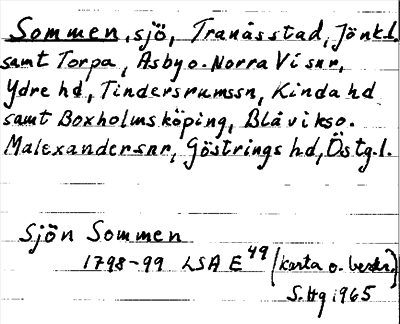 Sommen, sjö, Tranåsstad, Jönk.l.
samt Torpa, Asby o. Norra Vi snr,
Ydre hd, Tindersrumssn, Kinda hd
samt Boxholmsköping, Blåvikso.
Malexandersnr, Göstrings hd, Östg.l.
Sjön Sommen
1798-99 LSA E 49 (karta o. beskr.)
S.Hg 1965